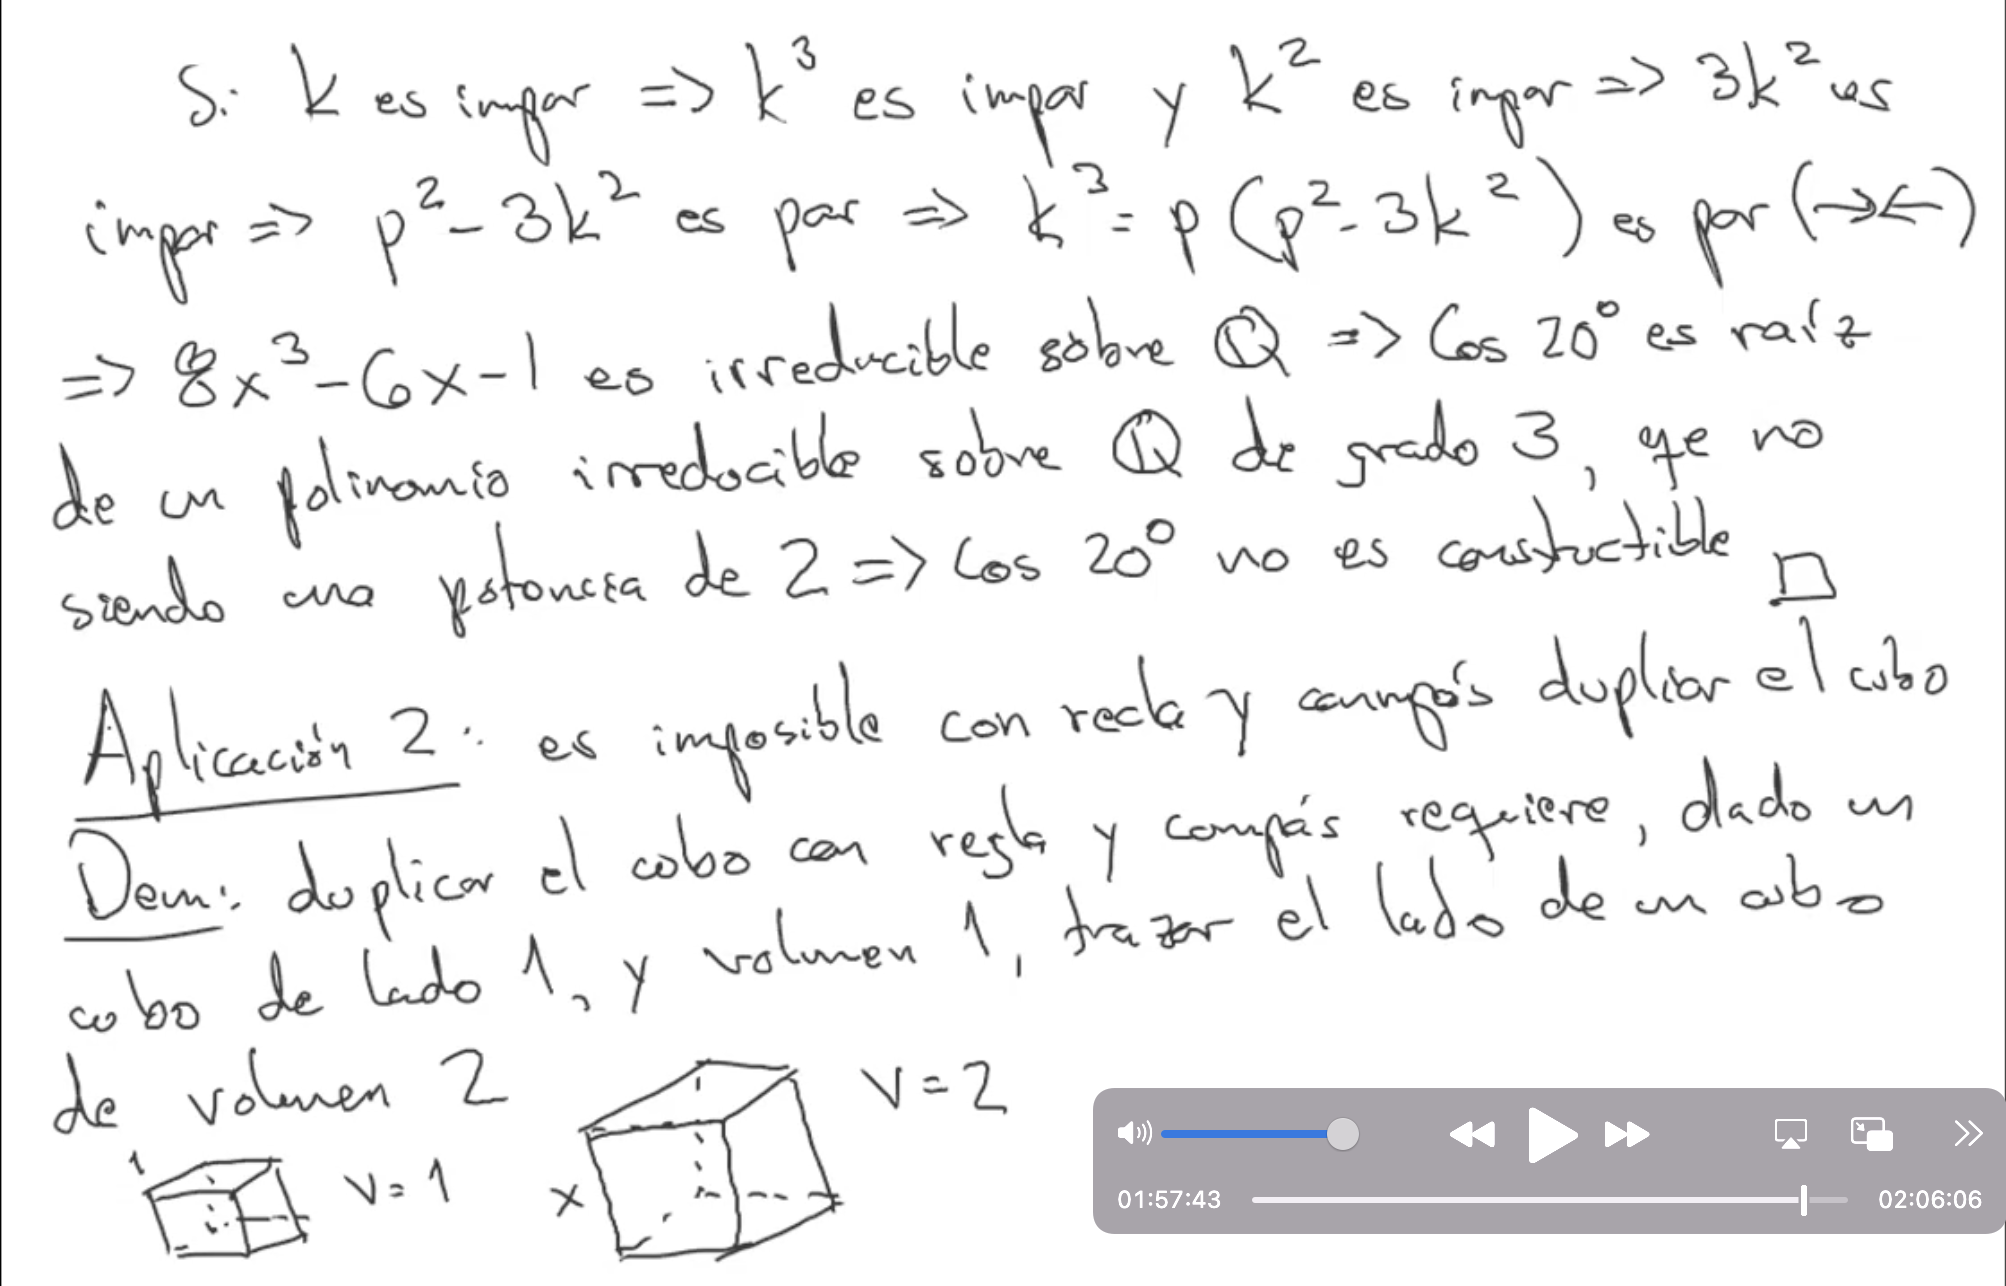 Si k es impar => k³ es impar y k² es impar => 3k² es
impar => p² - 3k² es par => k³ = p (p² - 3k²) es par (→←)
=> 8x³ - 6x - 1 es irreducible sobre ℚ => Cos 20° es raíz
de un polinomio irreducible sobre ℚ de grado 3, qe no
siendo una potencia de 2 => Cos 20° no es constructible □
Aplicación 2: es imposible con recla y compás dupliar el cubo
Dem: duplicar el cubo con regla y compás requiere, dado un
cubo de lado 1, y volumen 1, trazar el lado de un cubo
de volumen 2
V = 2
1
V = 1
x
01:57:43
02:06:06